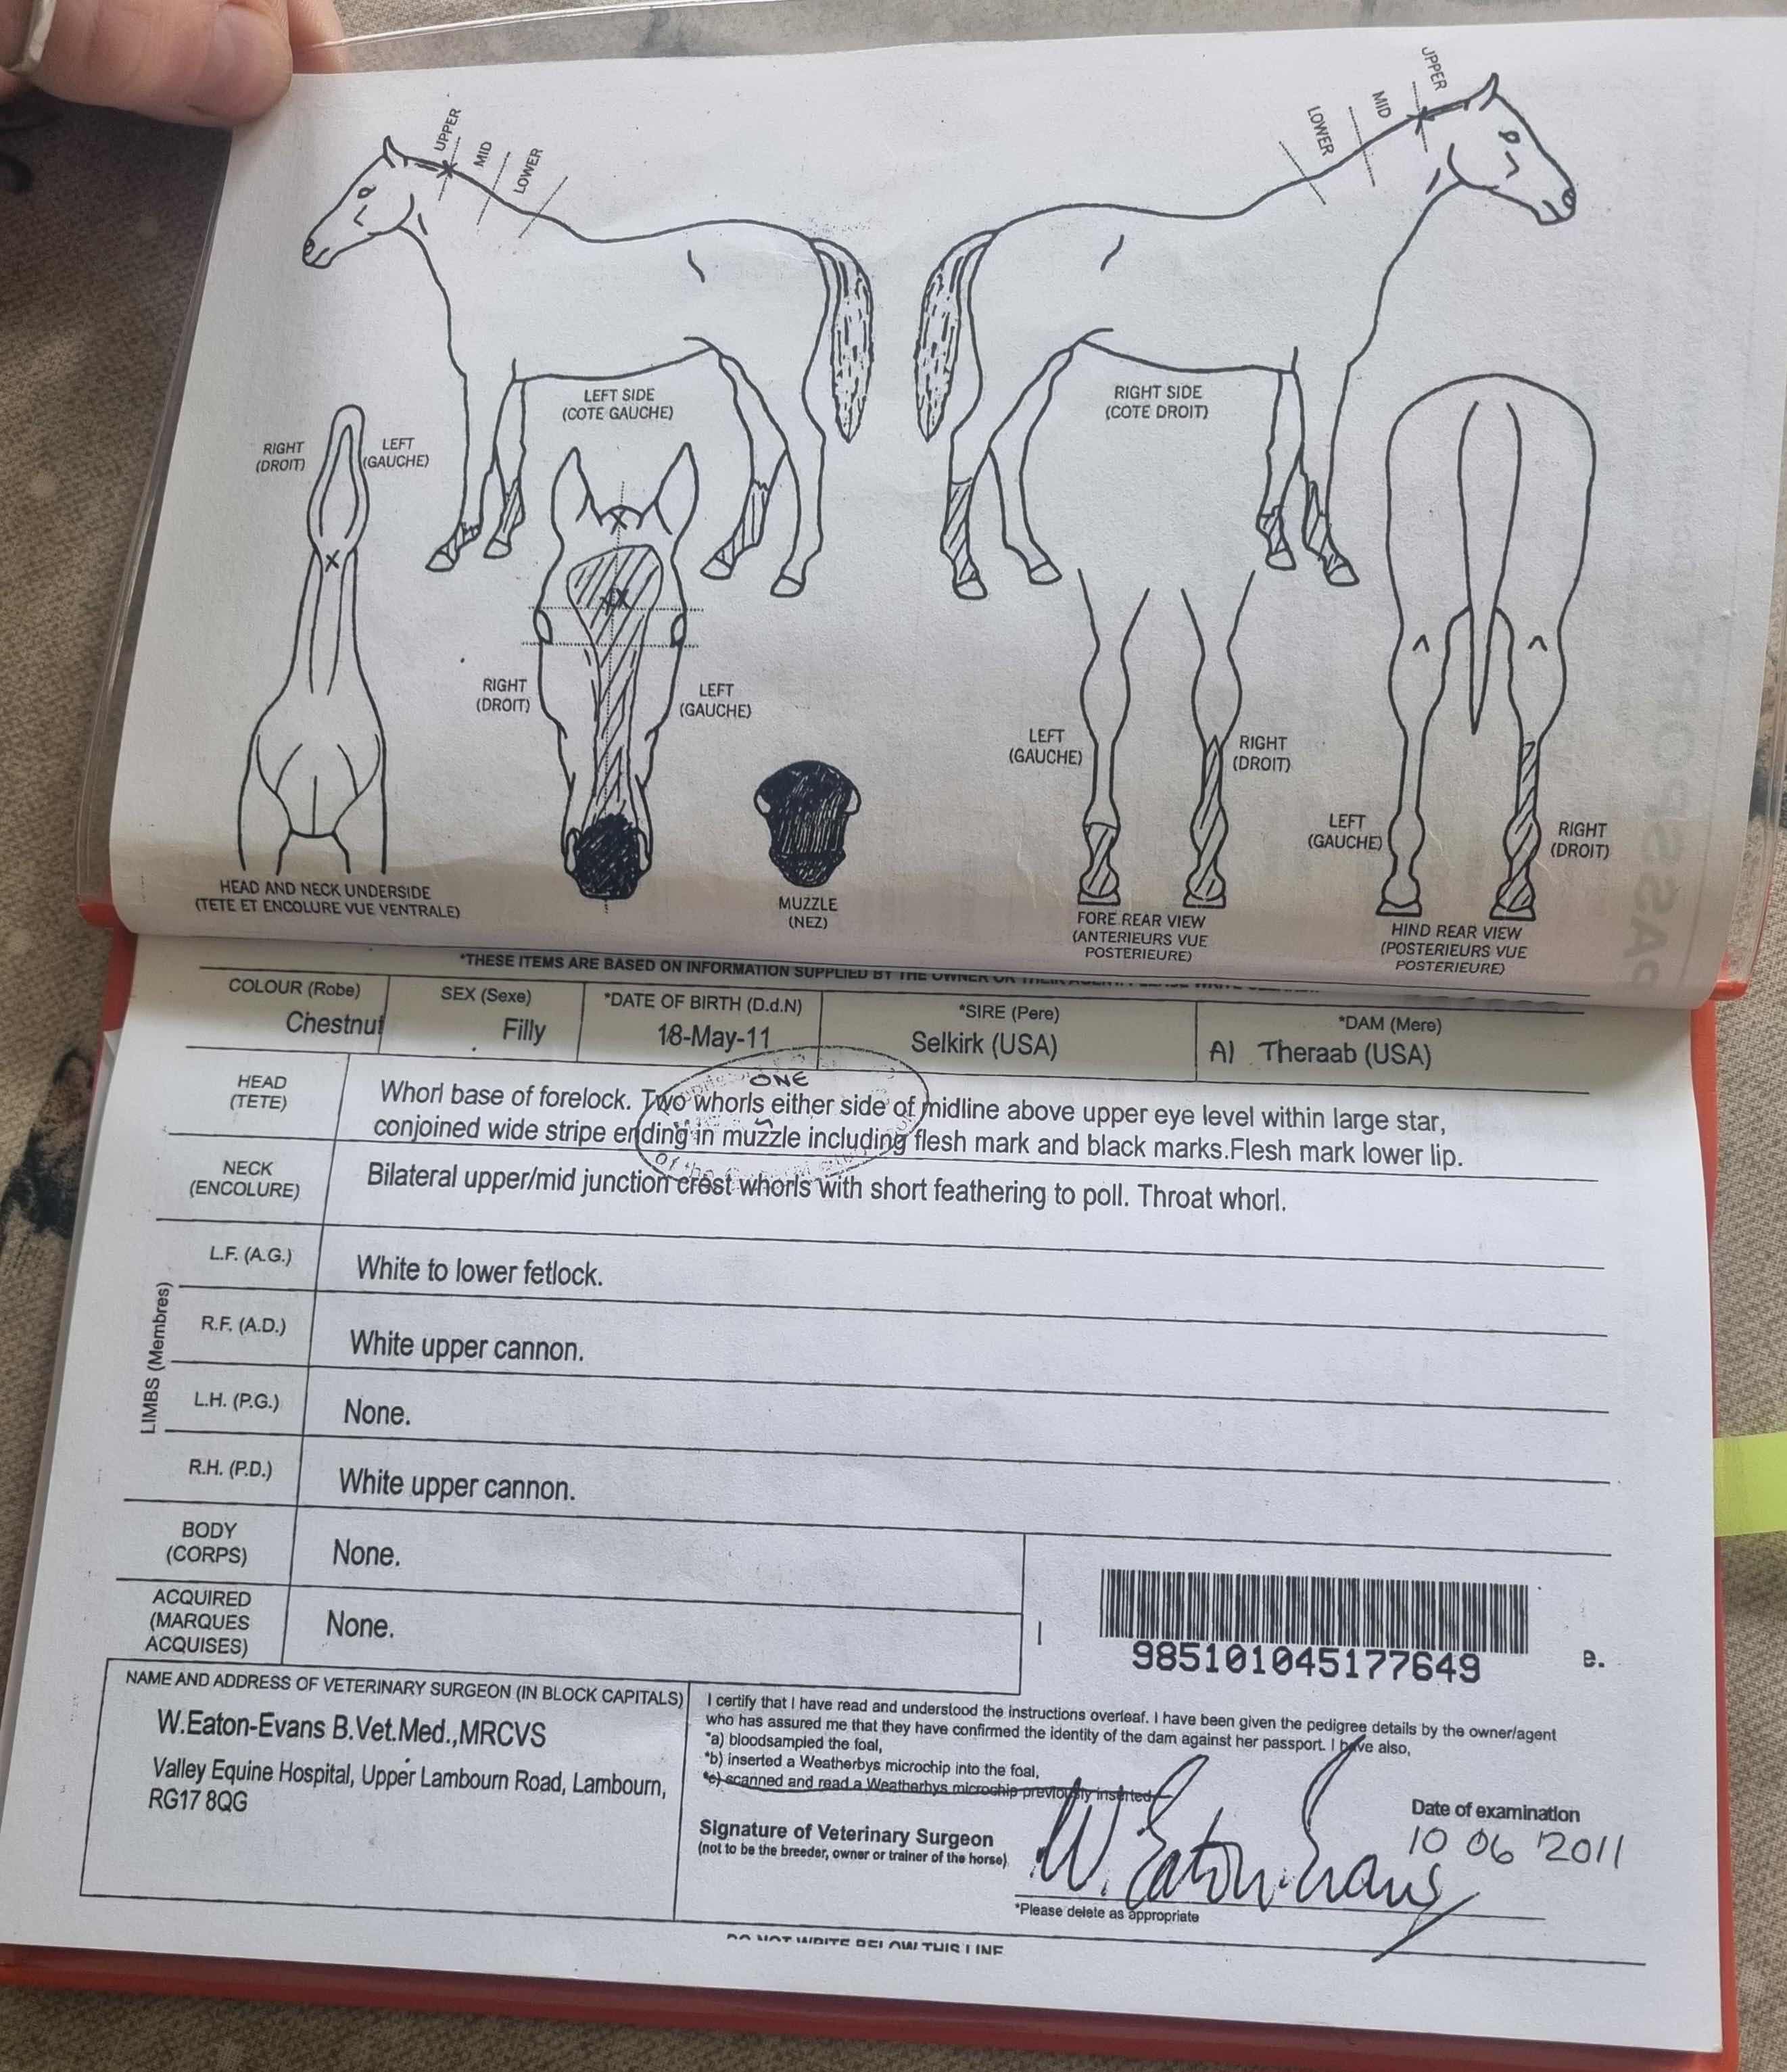 UPPER
MID
LOWER
LOWER
MID
UPPER
LEFT SIDE
(COTE GAUCHE)
RIGHT SIDE
(COTE DROIT)
RIGHT
(DROIT)
LEFT
(GAUCHE)
RIGHT
(DROIT)
LEFT
(GAUCHE)
LEFT
(GAUCHE)
RIGHT
(DROIT)
LEFT
(GAUCHE)
RIGHT
(DROIT)
HEAD AND NECK UNDERSIDE
(TETE ET ENCOLURE VUE VENTRALE)
MUZZLE
(NEZ)
FORE REAR VIEW
(ANTERIEURS VUE
POSTERIEURE)
HIND REAR VIEW
(POSTERIEURS VUE
POSTERIEURE)
*THESE ITEMS ARE BASED ON INFORMATION SUPPLIED BY THE OWNER OR THEIR
COLOUR (Robe) SEX (Sexe) *DATE OF BIRTH (D.d.N) *SIRE (Pere) *DAM (Mere)
Chestnut Filly 18-May-11 Selkirk (USA) A) Theraab (USA)
HEAD
(TETE)
ONE
Whorl base of forelock. Two whorls either side of midline above upper eye level within large star,
conjoined wide stripe ending in muzzle including flesh mark and black marks.Flesh mark lower lip.
of the
NECK
(ENCOLURE)
Bilateral upper/mid junction crest whorls with short feathering to poll. Throat whorl.
LIMBS (Membres)
L.F. (A.G.) White to lower fetlock.
R.F. (A.D.) White upper cannon.
L.H. (P.G.) None.
R.H. (P.D.) White upper cannon.
BODY
(CORPS)
None.
ACQUIRED
(MARQUES
ACQUISES)
None.
985101045177649
e.
NAME AND ADDRESS OF VETERINARY SURGEON (IN BLOCK CAPITALS)
W.Eaton-Evans B.Vet.Med.,MRCVS
Valley Equine Hospital, Upper Lambourn Road, Lambourn,
RG17 8QG
I certify that I have read and understood the instructions overleaf. I have been given the pedigree details by the owner/agent
who has assured me that they have confirmed the identity of the dam against her passport. I have also,
*a) bloodsampled the foal,
*b) inserted a Weatherbys microchip into the foal,
*c) scanned and read a Weatherbys microchip previously inserted
Signature of Veterinary Surgeon
(not to be the breeder, owner or trainer of the horse)
W. Eaton-Evans
Date of examination
10 06 2011
*Please delete as appropriate
DO NOT WRITE BELOW THIS LINE